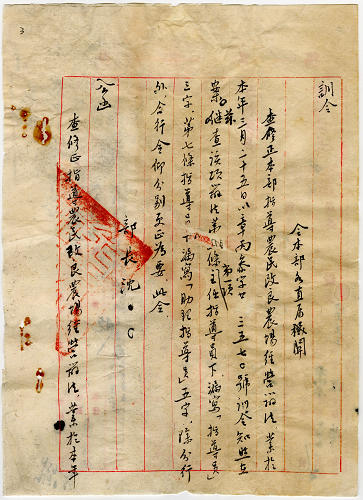 訓令
令本部各直屬機關
查修正本部指導農民改良農場經營辦法，業於
本年三月二十五日以章丙參字 三五七〇號訓令知照在
案。茲查該項辦法第 條第一項主任指導員下漏寫「指導員」
三字，第七條指導員下漏寫「助理指導員」五字，除分行
外，合行令仰分別更正為要。此令
部長沈
公函
查修正指導農民改良農場經營辦法，業於本年
3